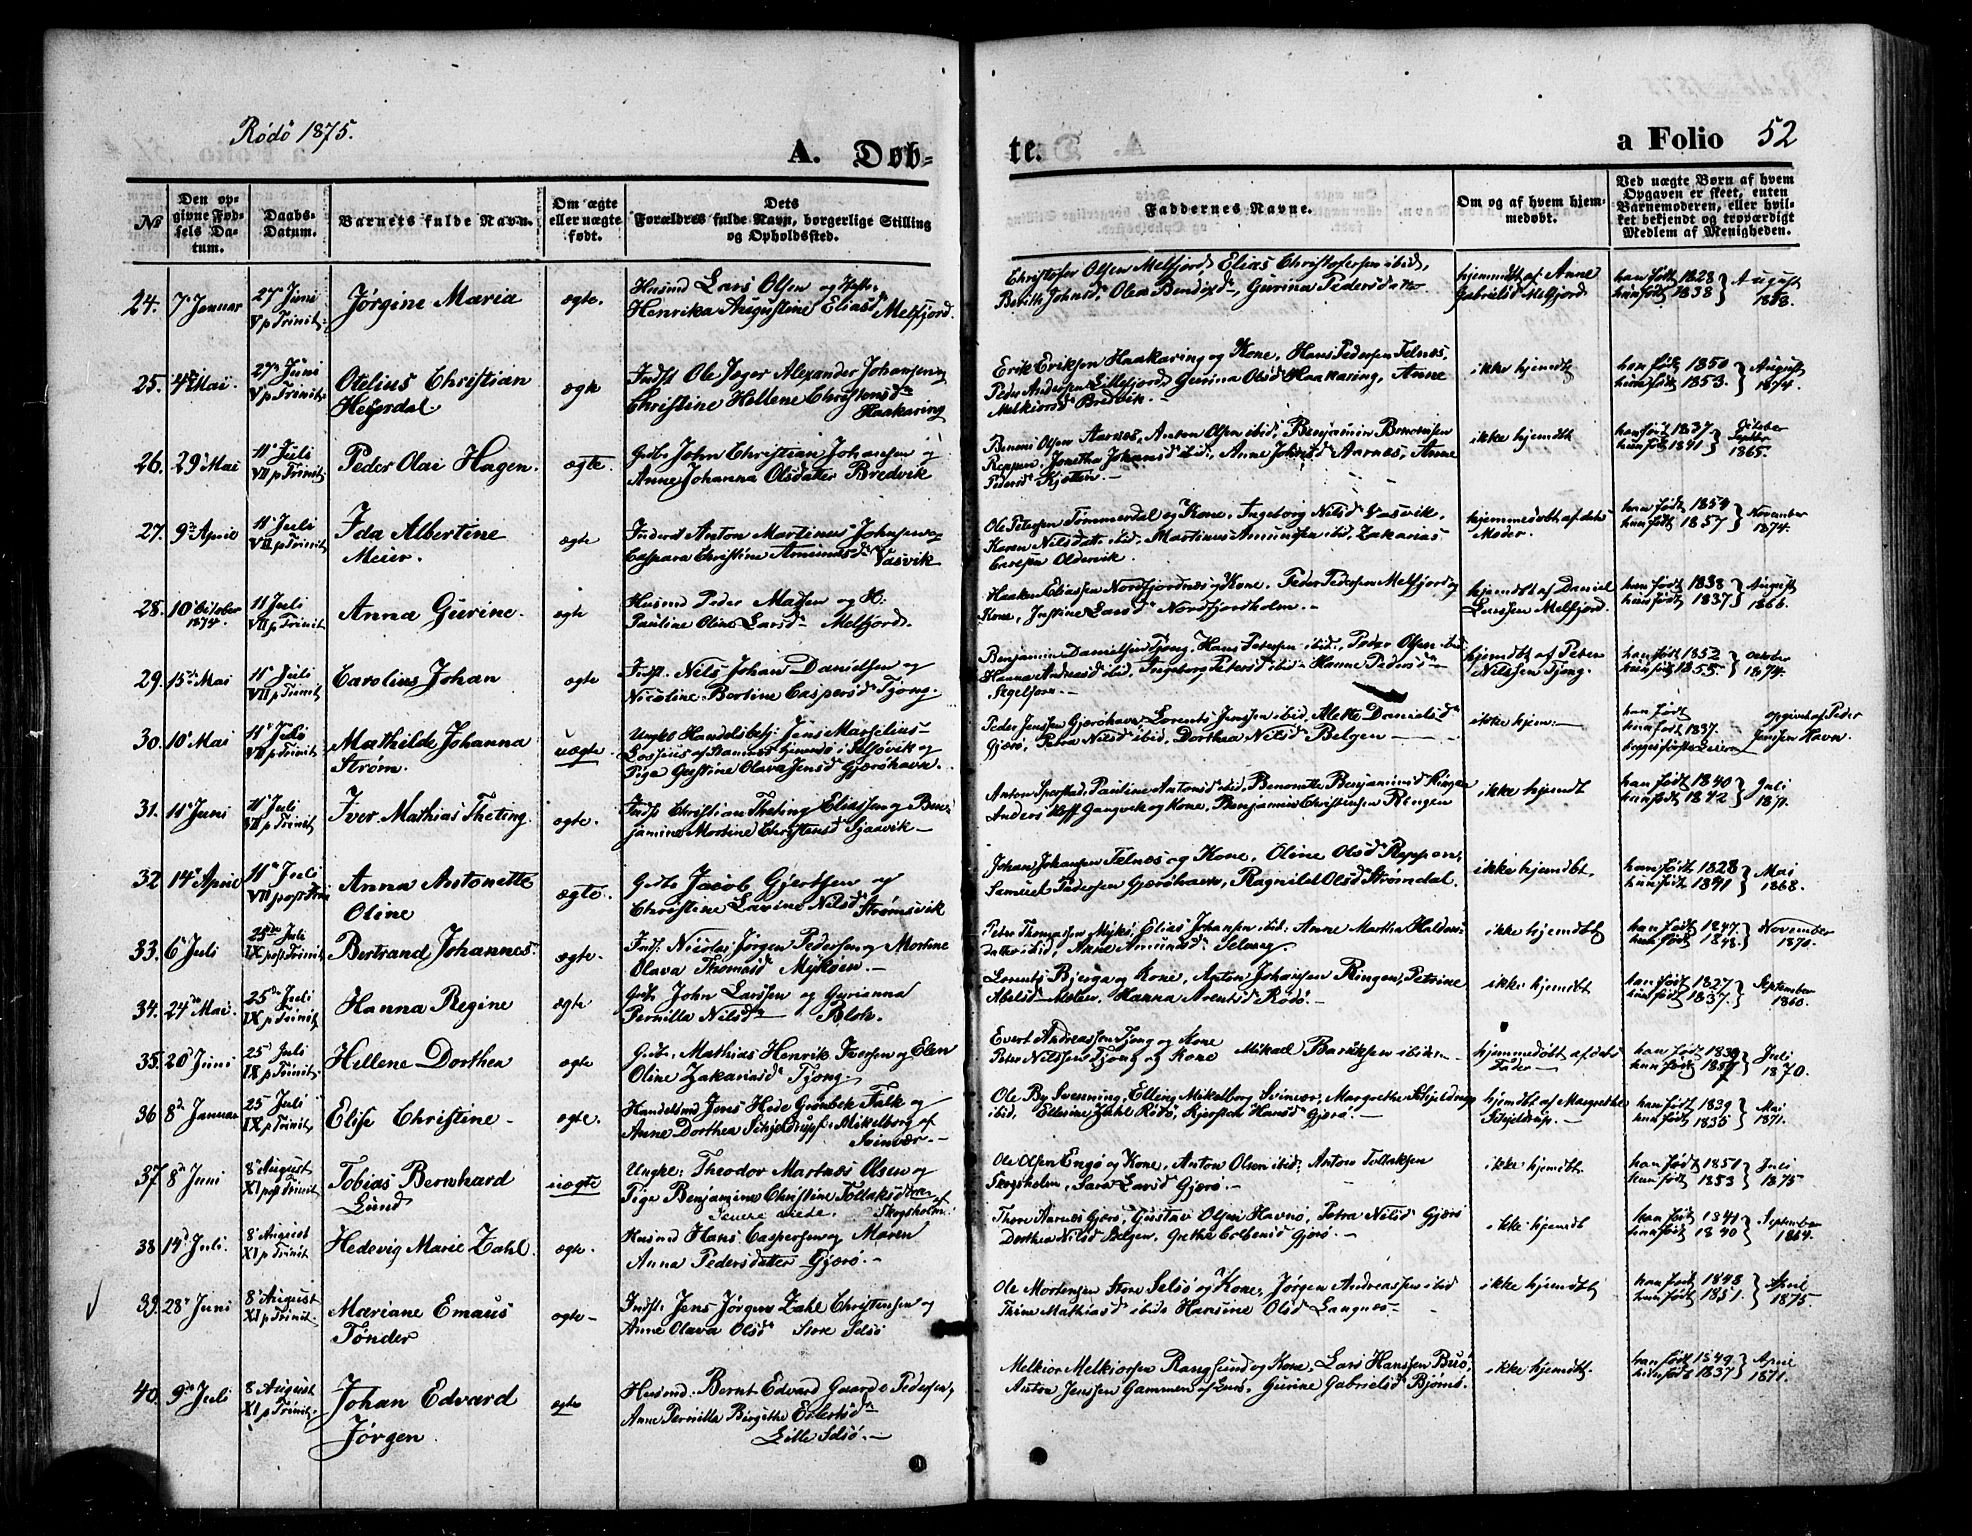 Rödö 1875.
A. Døb-
te.
a Folio 52
№
Den opgivne Fødsels Datum.
Daabs-Datum.
Barnets fulde Navn.
Om ægte eller uægte født.
Dets Forældres fulde Navn, borgerlige Stilling og Opholdssted.
Faddernes Navne.
Om og af hvem hjemmedøbt.
Ved uægte Børn af hvem Opgaven er skeet, enten Barnemoderen, eller hvilket bekjendt og troværdigt Medlem af Menigheden.
24. 7 Januar 27 Juni V p Trinit. Jørgine Maria ægte. Husmd Lars Olsen og Hustr. Henrika Augustine Eliasd Melfjord.
Christofer Olsen Melfjord, Elias Christofersen ibid, Berith Johnsd, Olea Bendixd, Gurina Pedersdatter hjemmdt af Anne Gabrielsd Melfjord han født 1828 hun født 1838 August
25. 4 Mai. 27 Juni V p Trinit. Otelius Christian Heyerdal ægte Indst Ole Jæger Alexander Johansen og Christine Hellene Christensd Haakaring
Erik Eriksen Haakaring og Kone, Hans Pedersen Telnes, Peder Andersen Lillefjord, Gurina Olsd Haakaring, Anne Melkiorsd Bredvik. ikke hjemdt han født 1850 hun født 1853. August 1874.
26. 29 Mai 11 Juli VII p Trinit. Peder Olai Hagen. ægte. Grbr John Christian Johansen og Anne Johanna Olsdatter Bredvik
Olsen Aarnes, Anton Olsen ibid, Benjamin Reppen, Johansd ibid, Anne Aarnes, Anne Pedersd Kjøtten. ikke hjemdt han født 1837 hun født 1841 1865.
27. 9 April 11 Juli VII p Trinit. Ida Albertine Meier. ægte Inderst Anton Martinus Johnsen og Caspara Christine Amundsd Vasvik
Ole Petersen Tømmerdal og Kone, Ingeborg Nilsd Vasvik, Karen Nilsdatr ibid, Martinus Amundsen ibid, Zakarias Oldervik hjemmedøbt af dets Moder. han født 1854 hun født 1857 November 1874.
28. 10 October 1874. 11 Juli VII p Trinit. Anna Gurine. ægte Husmd Peder Matsen og H: Pauline Oline Larsd Melfjord.
Haaken Eliassen Nordfjordnes og Kone. Peder Pedersen Melfjord og Kone, Justine Larsd Nordfjordholm. hjemdt af Daniel Larssen Melfjord. han født 1838 hun født 1837 August 1866.
29. 15 Mai 11 Juli VII p Trinit. Carolius Johan ægte Indst. Nils Johan Danielsen og Nicoline Bertine Caspersd Tjong.
Benjamin Danielsen Tjong, Hans Petersen ibid, Peder Olsen ibid Hanna Andreasd ibid, Ingeborg Petersd ibid. Hanne Pedersd Segelforn. hjemdt af Peter Nilssen Tjong. han født 1852 hun født 1855. October 1874.
30. 10 Mai 11 Juli VII p Trinit. Mathilde Johanna Strøm. uægte. Ungkl Handelsbetj: Jens Marselius Lossius af Selsøvik og Pige Gustine Olava Jensd Gjærøhavn.
Peder Jenssen Gjærøhavn, Lorents Jenssen ibid, Mette Danielsd Gjærø, Petra Nilsd ibid, Dorthea Nilsd Belgen ikke hjem: han født hun født 1837. begges første Leier opgivet af Peder Jenssen Havn.
31. 11 Juni 11 Juli VII p Trinit Iver Mathias Theting. ægte. Indst Christian Theting Eliassen og Benjamine Martine Christensd Sjaavik
Anton Sporsted, Pauline Antonsd ibid, Benonette Benjaminsd Ringen Anders Gangvik og Kone, Benjamin Christensen Ringen ikke hjemdt han født 1840 hun født 1842 Juli
32 14 April 11 Juli VII post Trin Anna Antonette Oline ægte. Grdbr Jacob Gjertsen og Christine Lavine Nilsd Strømsvik
Johan Johansen Telnes og Kone, Oline Olsd Reppen, Samuel Pedersen Gjærøhavn, Ragnild Olsd Strømdal. ikke hjemdbt. han født 1828 hun født 1841 Mai 1868.
33. 6 Juli 25 Juli IX post Trinit. Bertrand Johannes. ægte. Indst. Nicolai Jørgen Pedersen og Martine Olava Thomasd Myköen.
Peter Thomassen Myke, Elias Johansen ibid. Anne Martha Haldorsdatter ibid, Anne Amundsd Selsøy ikke hjemdbt han født 1847. hun født 1848. November 1870.
34. 24 Mai. 25 Juli IX p Trinit. Hanna Regine ægte Grdbr John Larssen og Gurianna Pernilla Nilsd Blok.
Lorents Bjerga og Kone, Anton Johansen Ringen, Petrine Abelsd Melen, Hanna Arentsd Rødø. ikke hjemdbt han født 1827 hun født 1837. September 1860.
35. 20 Juni 25 Juli IX p Trinit. Hellene Dorthea ægte Grdbr. Mathias Henrik Iversen og Elen Oline Zakariasd Tjong
Evert Andreassen Tjong og Kone Peter Nilssen Tjong og Kone Mikael ibidm hjemmedøbt af dets Fader han født hun født Juli 1870.
36 8 Januar 25 Juli IX p Trinit. Elise Christine ægte. Handelsmd Jens Hede Grønbek Falk og Anne Dorthea Schjeldrup f. Mikelborg af Svinvær.
Ole By Svenning, Elling Mikelborg Svinvær, Margrethe Schjeldrup ibid, Ellevine Zahl Rødø, Kjersten Hansd Gjærø. hjemdbt af Margrethe Schjeldrup. han født 1839 hun født 1835 Mai 1871.
37. 8 Juni 8 August XI post Trinit. Tobias Bernhard Lund uægte Ungkl. Theodor Martnes Olsen og Pige Benjamine Christine Tollaksd af Skogsholm. Senere viede.
Ole Olsen Engø og Kone, Anton Olsen ibid: Anton Tollaksen Skogsholm, Sara Larsd Gjærø. ikke hjemdbt han født 1851 hun født 1853 Juli 1875
38 14 Juli. 8 August XI p Trinit. Hedevig Marie Zahl. ægte. Husmd Hans Caspersen og Maren Anna Pedersdatter Gjærø.
Thore Aarnes Gjærø, Gustav Olsen Havnø, Petra Nilsd Gjærø Dorthea Nilsd Belgen, Grethe Gjærø. ikke hjemdbt han født 1841 hun født 1840 September 1864.
39. 28 Juni 8 August XI p Trinit. Mariane Emaus Tønder ægte Indst. Jens Jørgen Zahl Christensen og Anne Olava Olsd Store Selsø
Ole Mortensen Store Selsø og Kone, Jørgen Andreassen ibid Thrine Mathiasd ibid, Hansine Olsd Langnes ikke hjemdbt han født 1848 hun født 1851. April 1875.
40. 9 Juli 8 August XI p Trinit. Johan Edvard Jørgen. ægte Husmd. Bernt Edvard Pedersen, Anne Pernilla Birgithe Lille Selsø.
Melkior Melkiorsen Rangsund og Kone, Lars Hanssen Buø, Anton Jenssen Gammen af Lurø, Gurine Gabrielsd Bjørnø. ikke hjemdbt. han født 1849 hun født 1837 April 1871.